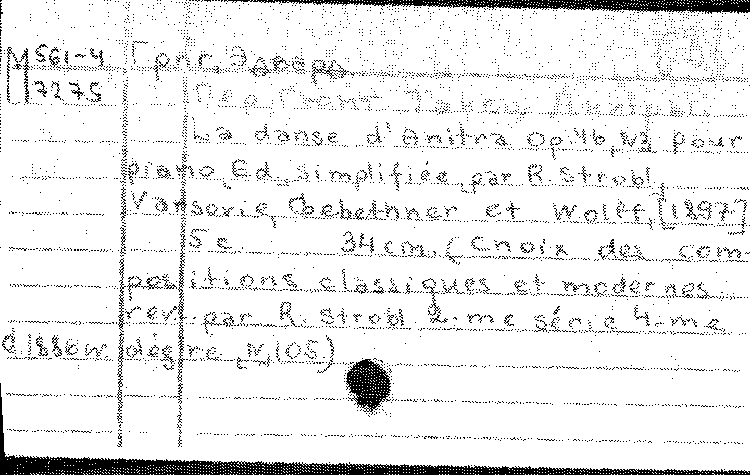 М 561-4 Григ, Эдвард
7275 Пер Гюнт Танец Анитры.
La danse d'Anitra Op.46, №3 pour
piano. Ed. simplifiée par R. Strobl,
Varsovie, Gebethner et Wolff, [1897]
5 c. 34 cm. (Choix des com-
positions classiques et modernes
rev. par R. Strobl 2-me série 4-me
degré, N, 105)